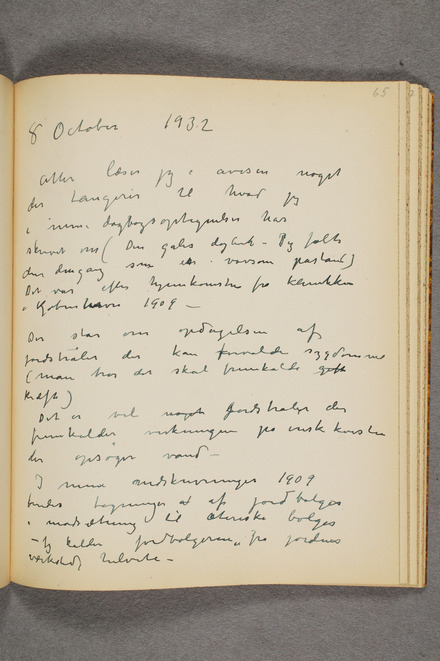 65
8 October 1932
Atter læser jeg i avisen noget
der tangerer til hvad jeg
i mine dagbogsoptegnelser har
skrevet om (Den gales dagbok – Jeg følte
den dengang som en vovsom påstand)
Det var efter hjemkomsten fra klinikken
i Kjøbenhavn 1909 –
Der står om opdagelsen af
jordstråler der kan forvolde sygdomme
(man tror det skal fremkalde
kræft)
Det er vel noget jordstråler der
fremkalder virkningen på
der opsøger vand –
I mine nedskrivninger 1909
findes tegninger af jordbølger
i modsætning til æteriske bølger
– Jeg kalder jordbølgerne, fra jordens
helvete –